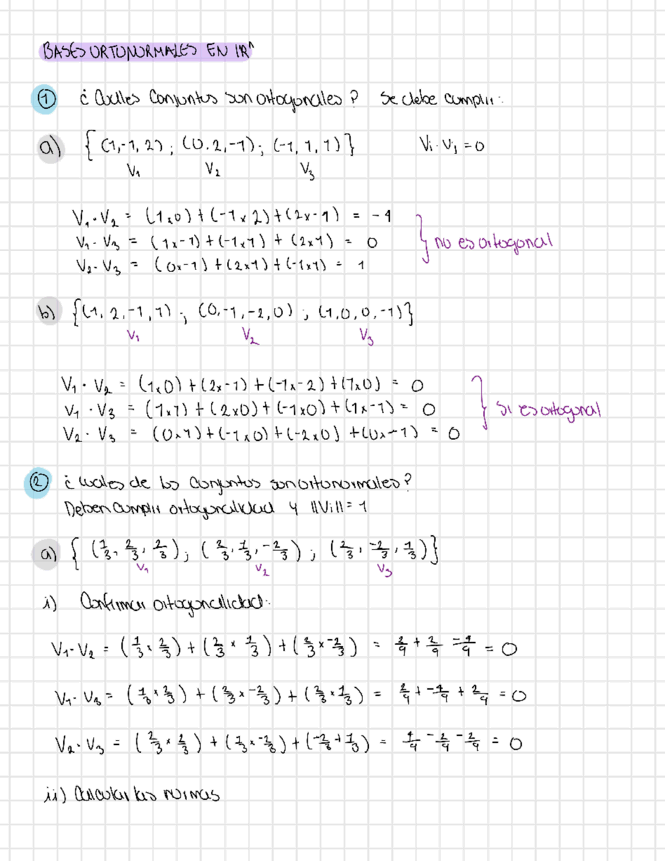 BASES ORTONORMALES EN IRⁿ
① ¿ Cuáles Conjuntos son ortogonales ? Se debe cumplir:
a) { (1,-1,2) ; (0,2,-1) ; (-1,1,1) } Vi · Vj = 0
V₁ V₂ V₃
V₁ · V₂ = (1x0) + (-1x2) + (2x-1) = -4
V₁ · V₃ = (1x-1) + (-1x1) + (2x1) = 0
V₂ · V₃ = (0x-1) + (2x1) + (-1x1) = 1
} no es ortogonal
b) { (1, 2, -1, 1) ; (0, -1, -2, 0) ; (1, 0, 0, -1) }
V₁ V₂ V₃
V₁ · V₂ = (1x0) + (2x-1) + (-1x-2) + (1x0) = 0
V₁ · V₃ = (1x1) + (2x0) + (-1x0) + (1x-1) = 0
V₂ · V₃ = (0x1) + (-1x0) + (-2x0) + (0x-1) = 0
} si es ortogonal
② ¿ Cuales de los Conjuntos son ortonormales?
Deben cumplir ortogonalidad y ||Vi|| = 1
a) { (1/3, 2/3, 2/3) ; (2/3, 1/3, -2/3) ; (2/3, -2/3, 1/3) }
V₁ V₂ V₃
i) Confirmar ortogonalidad:
V₁ · V₂ = (1/3 x 2/3) + (2/3 x 1/3) + (2/3 x -2/3) = 2/9 + 2/9 -4/9 = 0
V₁ · V₃ = (1/3 x 2/3) + (2/3 x -2/3) + (2/3 x 1/3) = 2/9 + -4/9 + 2/9 = 0
V₂ · V₃ = (2/3 x 2/3) + (1/3 x -2/3) + (-2/3 + 1/3) = 4/9 - 2/9 - 2/9 = 0
ii) Calcular las normas